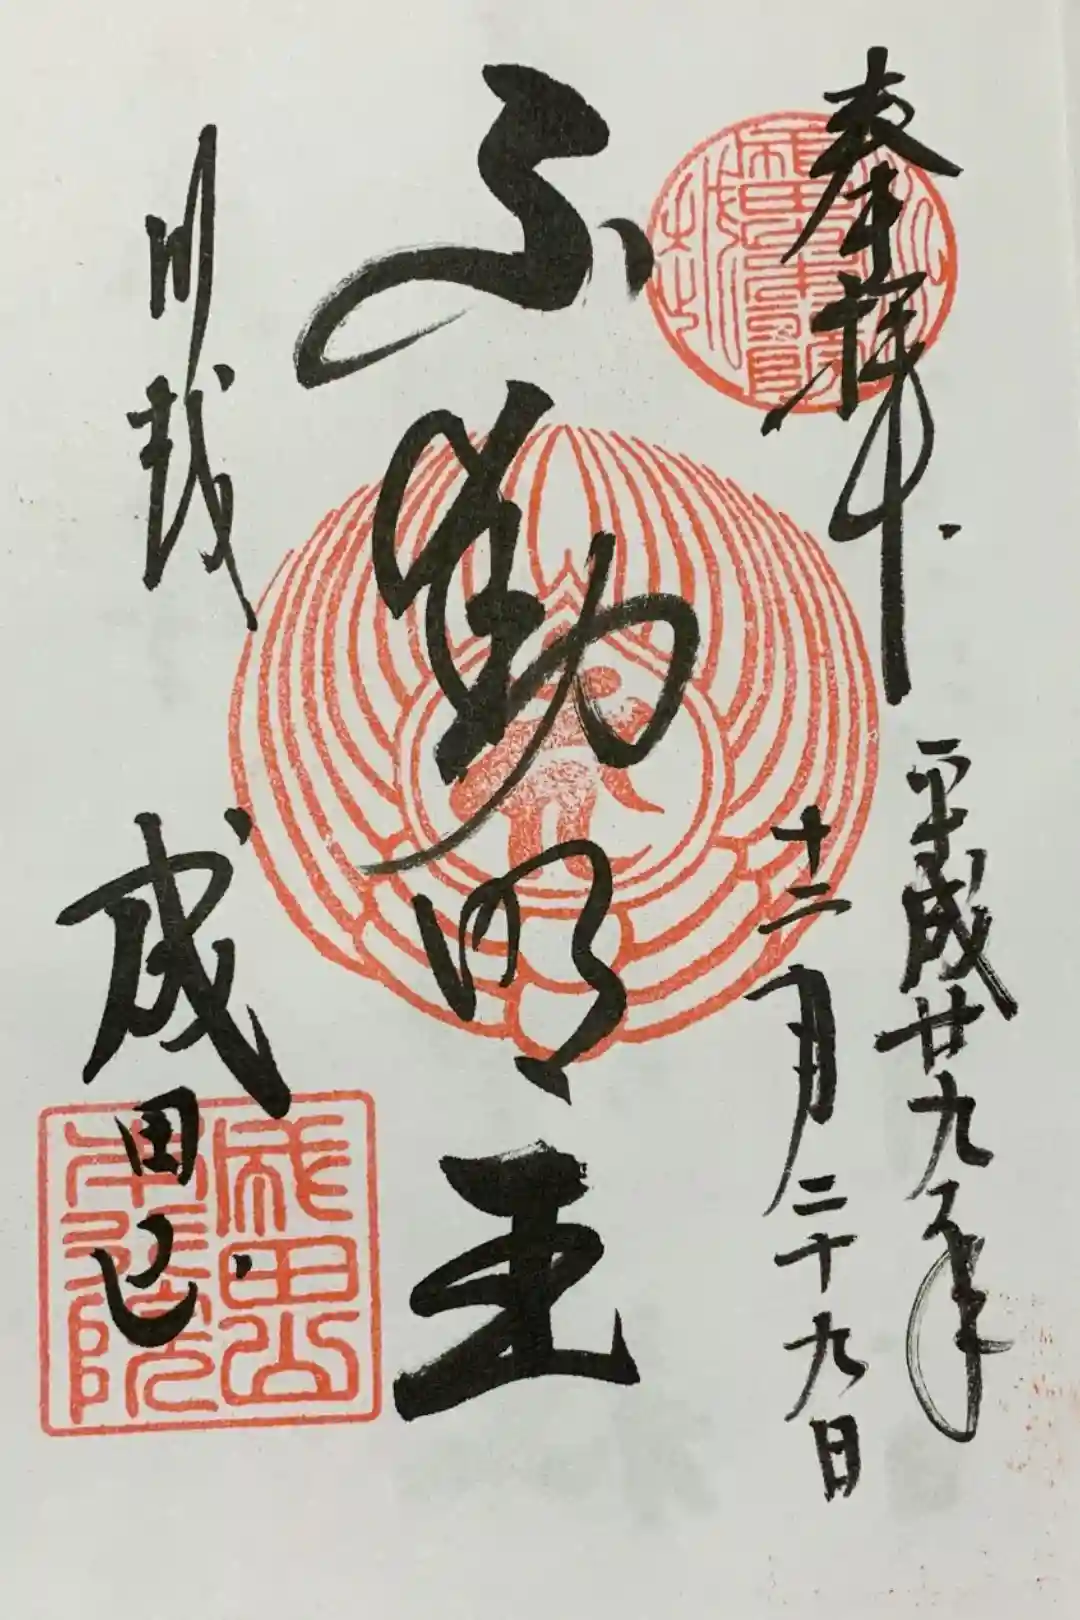 奉拝
平成廿九年
十二月二十九日
不動明王
川越
成田山
成田山
本行院